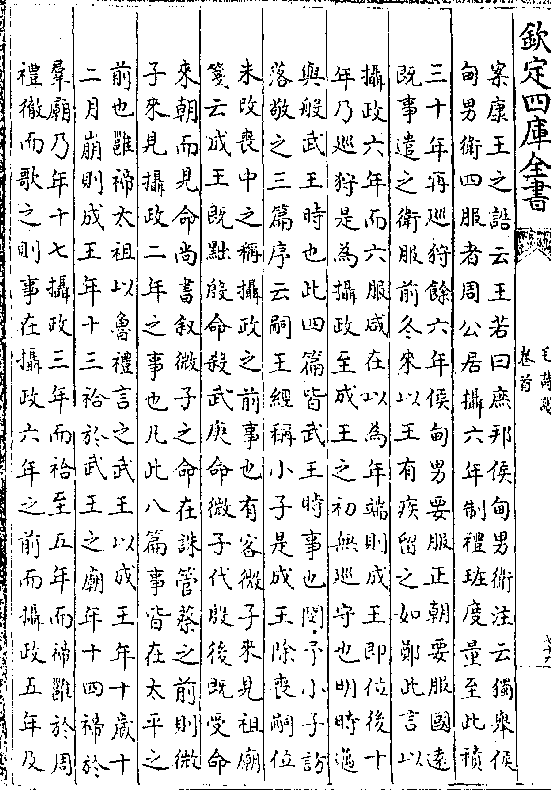 欽定四庫全書
毛詩疏
卷首
案康王之誥云王若曰庶邦侯甸男衛注云獨舉侯
甸男衛四服者周公居攝六年制禮班度量至此積
三十年再巡狩餘六年侯甸男要服正朝要服國遠
既事遣之衛服前冬來以王有疾留之如鄭此言以
攝政六年而六服咸在以為年端則成王即位後十
年乃巡狩是為攝政至成王之初無巡守也明時邁
與般武王時也此四篇皆武王時事也閔予小子訪
落敬之三篇序云嗣王經稱小子是成王除喪嗣位
未改喪中之稱攝政之前事也有客微子來見祖廟
箋云成王既黜殷命殺武庚命微子代殷後既受命
來朝而見命尚書叙微子之命在誅管蔡之前則微
子來見攝政二年之事也凡此八篇事皆在太平之
前也雝禘太祖以魯禮言之武王以成王年十歲十
二月崩則成王年十三祫於武王之廟年十四禘於
羣廟乃年十七攝政三年而祫至五年而禘雝於周
禮徹而歌之則事在攝政六年之前而攝政五年及